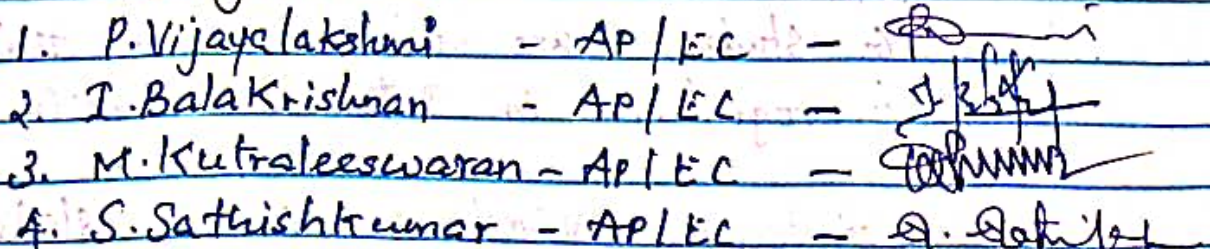 1. P. Vijayalakshmi - AP/EC -
2. I. BalaKrishnan - AP/EC -
3. M. Kutraleeswaran - AP/EC -
4. S. Sathishkumar - AP/EC -